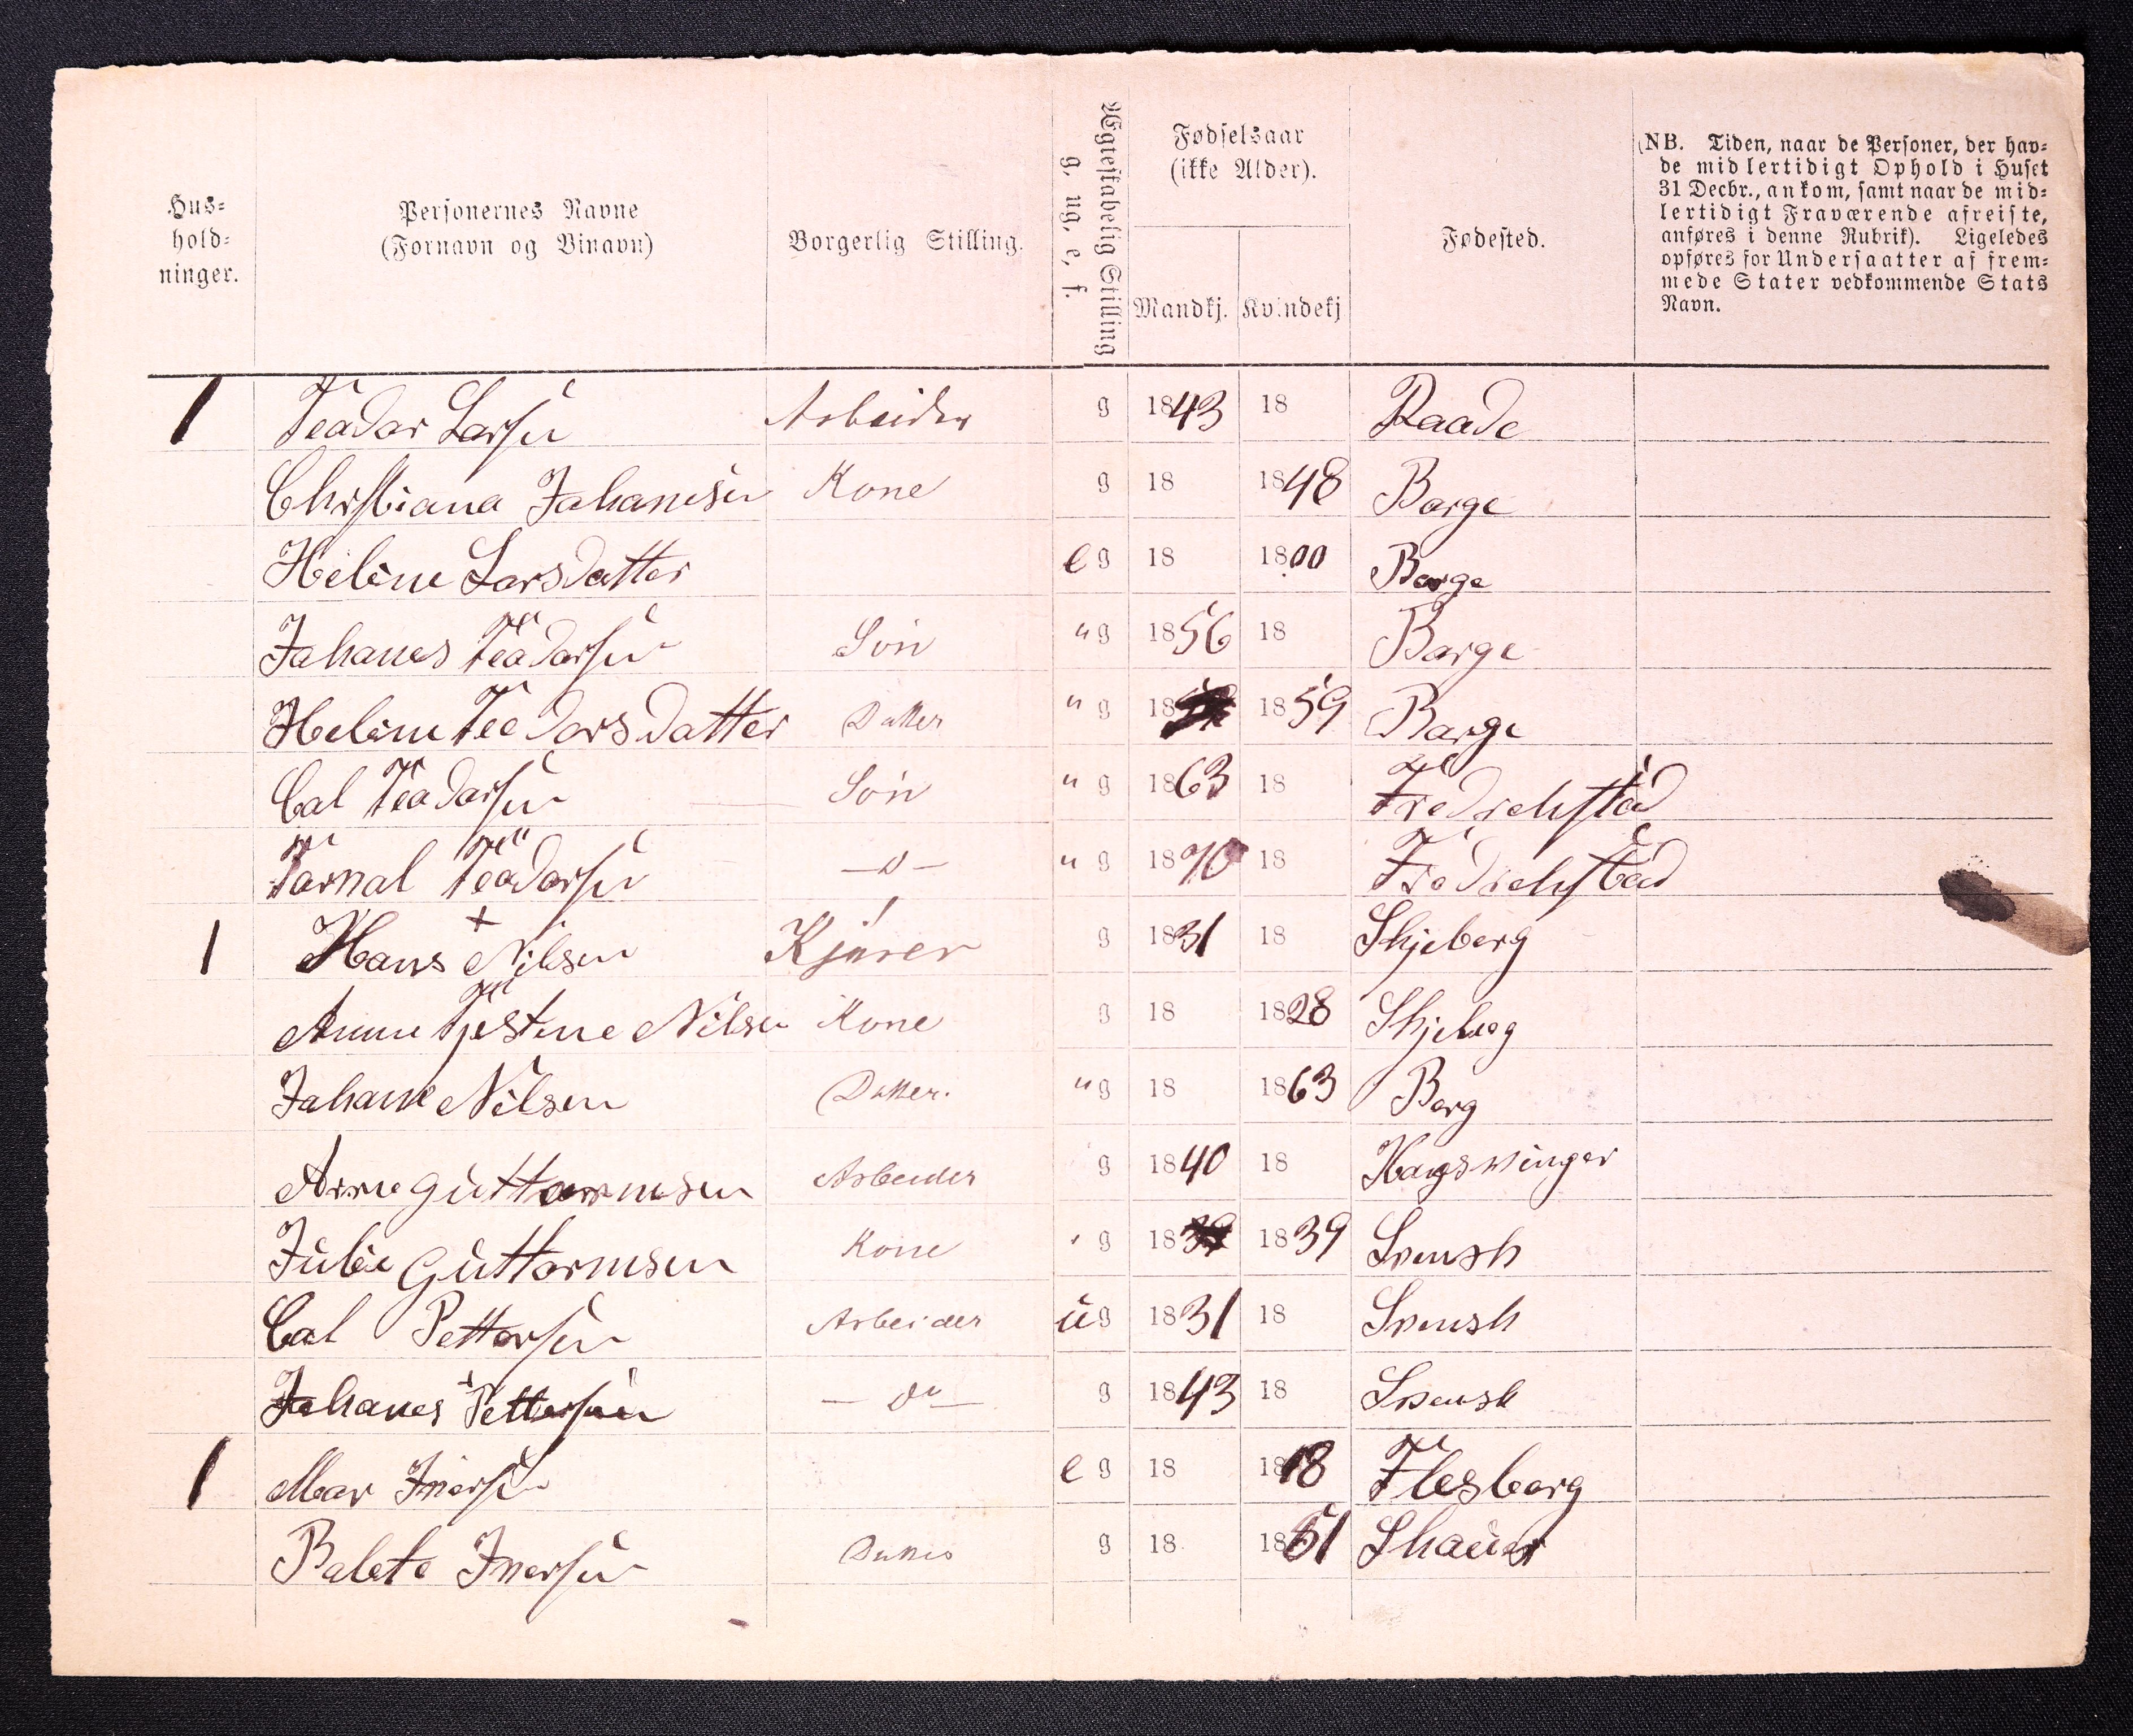 Hus-
hold-
ninger.
Personernes Navne
(Fornavn og Binavn)
Borgerlig Stilling.
Ægteskabelig Stilling
g, ug, e, f.
Fødselsaar
(ikke Alder).
Mandkj. Kvindekj
Fødested.
(NB. Tiden, naar de Personer, der hav-
de midlertidigt Ophold i Huset
31 Decbr., ankom, samt naar de mid-
lertidigt Fraværende afreiste,
anføres i denne Rubrik). Ligeledes
opføres for Undersaatter af frem-
mede Stater vedkommende Stats
Navn.
1 Teador Larsen Arbeider g 1843 18 Raade
Christiana Johanesen Kone g 18 1848 Borge
Heléne Larsdatter e g 18 1800 Borge
Johanes Teadorsen Søn u g 1856 18 Borge
Heléne Teodorsdatter Datter u g 18 1859 Borge
Cal Teadorsen Søn u g 1863 18 Fredrichstad
Tornal Teadorsen — d — u g 1870 18 Fredrichstad
1 Hans Nilsen Kjører g 1831 18 Skjeberg
Anne Nilsen Kone g 18 1828 Skjeberg
Johane Nilsen Datter. u g 18 1863 Berg
Arne Guttormsen Arbeider g 1840 18 Kongsvinger
Julie Guttormsen Kone g 18 1839 Svensk
Cal Pettersen Arbeider u g 1831 18 Svensk
Johanes Pettersen — do — g 1843 18 Svensk
1 Mar Iversen e g 18 1818 Flesberg
Balete Iversen Datter g 18 1851